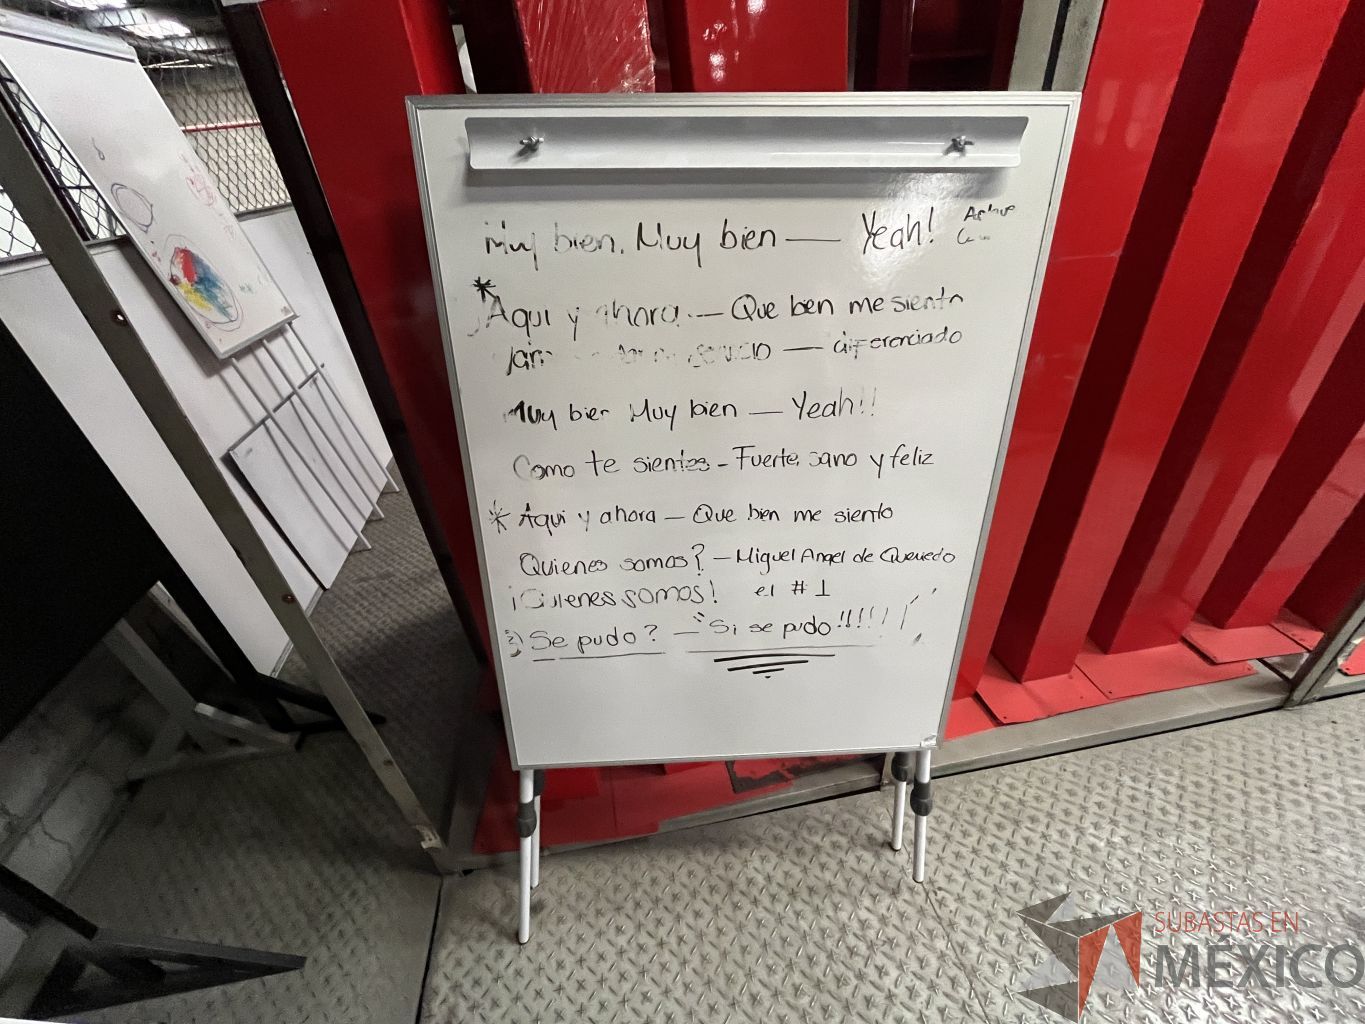 Muy bien. Muy bien — Yeah!
* Aqui y ahora. — Que bien me siento
— diferenciado
Muy bien Muy bien — Yeah!!
Como te sientes - Fuerte, sano y feliz
* Aqui y ahora — Que bien me siento
Quienes somos? - Miguel Angel de Quevedo
¡Quienes somos! el #1
Se pudo? — Si se pudo!!!!!!
SUBASTAS EN
MÉXICO